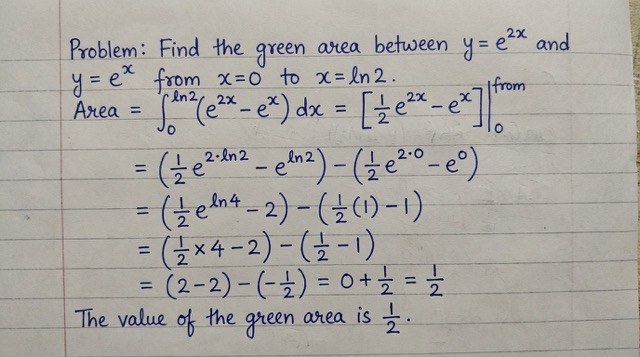 Problem: Find the green area between y = e^{2x} and
y = e^x from x=0 to x=ln2.
Area = ∫_0^{ln2} (e^{2x} - e^x) dx = [½ e^{2x} - e^x] |_0^{from}
= (½ e^{2·ln2} - e^{ln2}) - (½ e^{2·0} - e^0)
= (½ e^{ln4} - 2) - (½ (1) - 1)
= (½ × 4 - 2) - (½ - 1)
= (2-2) - (-½) = 0 + ½ = ½
The value of the green area is ½.